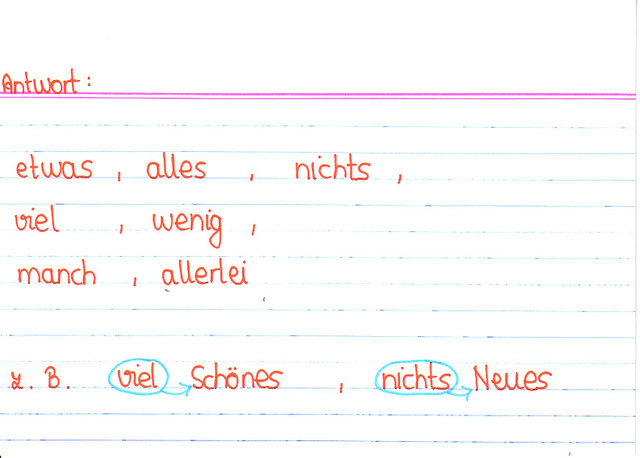 Antwort:
etwas, alles, nichts,
viel, wenig,
manch, allerlei
z. B. viel Schönes, nichts Neues